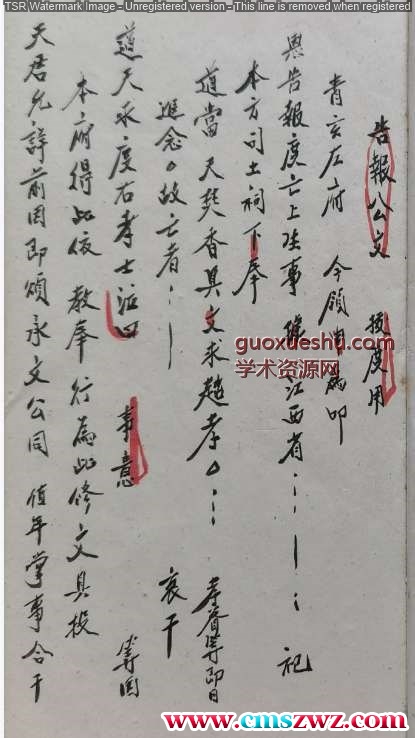 TSR Watermark Image - Unregistered version - This line is removed when registered
告報公文 救度用
青玄左府 今領
恩告報度亡上往事 江西省
本方司土祠下奉
道當天焚香具文求超孝
追念故亡者
哀干
孝眷等即日
道天永度右孝士 事意
專因
本府得此依教奉行為此修文具投
天君允詳前因即頒承文公同 值年掌事合干
guoxueshu.com
学术资源网
www.cmszwz.com